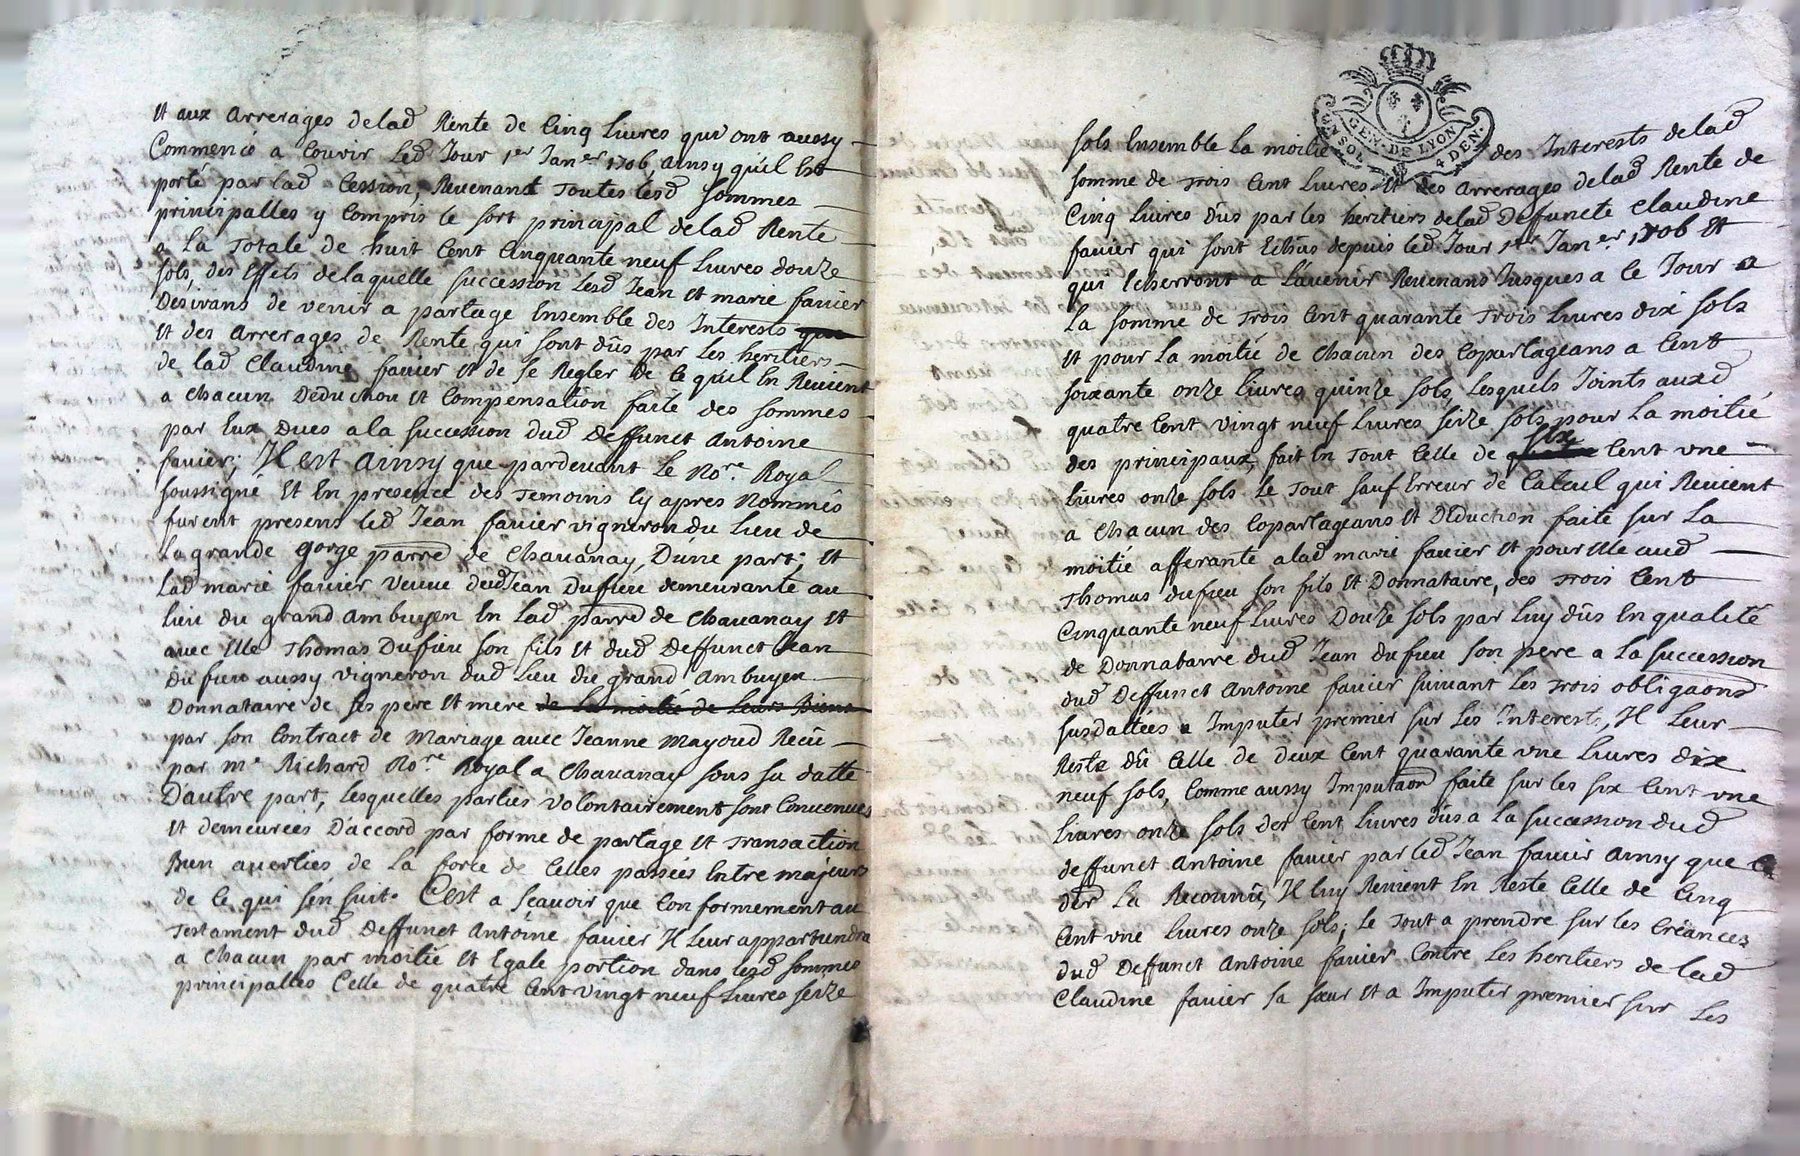 et aux arrerages delad rente de cinq livres qui ont aussy
commencé a courir led jour 1er janer 1706 ainsy quil est
porté par lad cession, revenant toutes lesd sommes
principalles y compris le sort principal delad rente
a la totale de huit cent cinquante neuf livres douze
sols, des effets delaquelle succession lesd jean et marie favier
desirans de venir a partage ensemble des interests
et des arrerages de rente qui sont dûs par les heritiers
de lad claudine favier et de se regler de ce quil en revient
a chacun deduction et compensation faite des sommes
par eux dues a la succession dud deffunct antoine
favier; Il est ainsy que pardevant le nore royal
soussigné et en presence des temoins cy apres nommés
furent presens led jean favier vigneron du lieu de
la grande gorge parre de chavanay, d'une part; et
lad marie favier veuve dud jean dufieu demeurante au
lieu du grand ambuyen en lad parre de chavanay et
avec elle thomas dufieu son fils et dud deffunct jean
dufieu aussy vigneron dud lieu du grand ambuyen
donnataire de ses pere et mere de la moitié de leurs biens
par son contract de mariage avec jeanne mayoud recû
par me richard nore royal a chavanay sous sa datte
d'autre part, lesquelles parties volontairement sont convenues
et demeurées d'accord par forme de partage et transaction
bien averties de la force de celles passées entre majeurs
de ce qui s'en suit. C'est a sçavoir que conformement au
testament dud deffunct antoine favier il leur appartiendra
a chacun par moitié et egale portion dans lesd sommes
principalles celle de quatre cent vingt neuf livres seize
GEN. DE LYON
SOL 4 DEN.
sols ensemble la moitié des interests delad
somme de trois cent livres et des arrerages delad rente de
cinq livres dûs par les heritiers delad deffuncte claudine
favier qui sont echûs depuis led jour 1er janer 1706 et
qui echerront a l'avenir revenans jusques a ce jour a
la somme de trois cent quarante trois livres dix sols
et pour la moitié de chacun des copartageans a cent
soixante onze livres quinze sols, lesquels joints auxd
quatre cent vingt neuf livres seize sols pour la moitié
des principaux, fait en tout celle de six cent une
livres onze sols le tout sauf erreur de calcul qui revient
a chacun des copartageans et deduction faite sur la
moitié afferante a lad marie favier et pour elle aud
thomas dufieu son fils et donnataire, des trois cent
cinquante neuf livres douze sols par luy dûs en qualité
de donnatarre dud jean dufieu son pere a la succession
dud deffunct antoine favier suivant les trois obligaons
susdattées a imputer premier sur les interests, il leur
reste dû celle de deux cent quarante une livres dix
neuf sols, comme aussy imputaon faite sur les six cent une
livres onze sols des cent livres dûs a la succession dud
deffunct antoine favier par led jean favier ainsy que ce
der la reconnû, il luy revient en reste celle de cinq
cent une livres onze sols; le tout a prendre sur les créances
dud deffunct antoine favier contre les heritiers de lad
claudine favier sa sœur et a imputer premier sur les